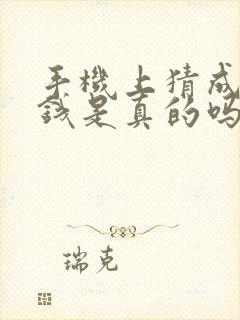 手機上猜成
錢是真的嗎
瑞克